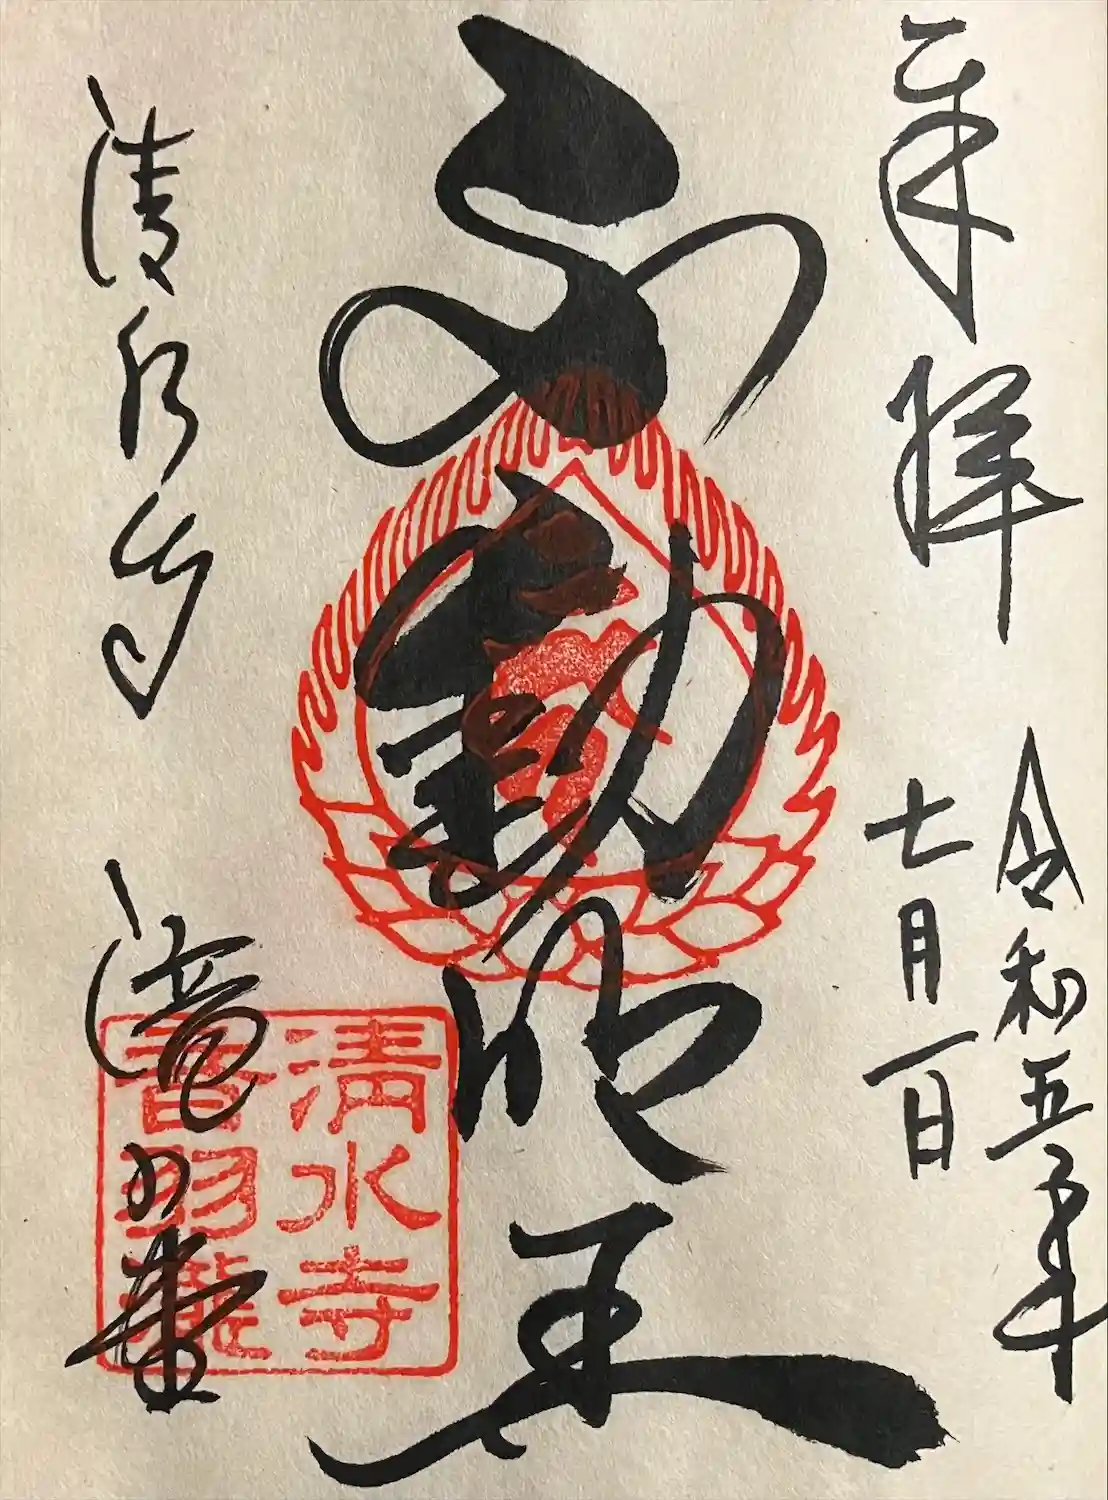 奉拝
令和五年
七月一日
不動明王
清水寺
滝の堂
清水寺
音羽瀧